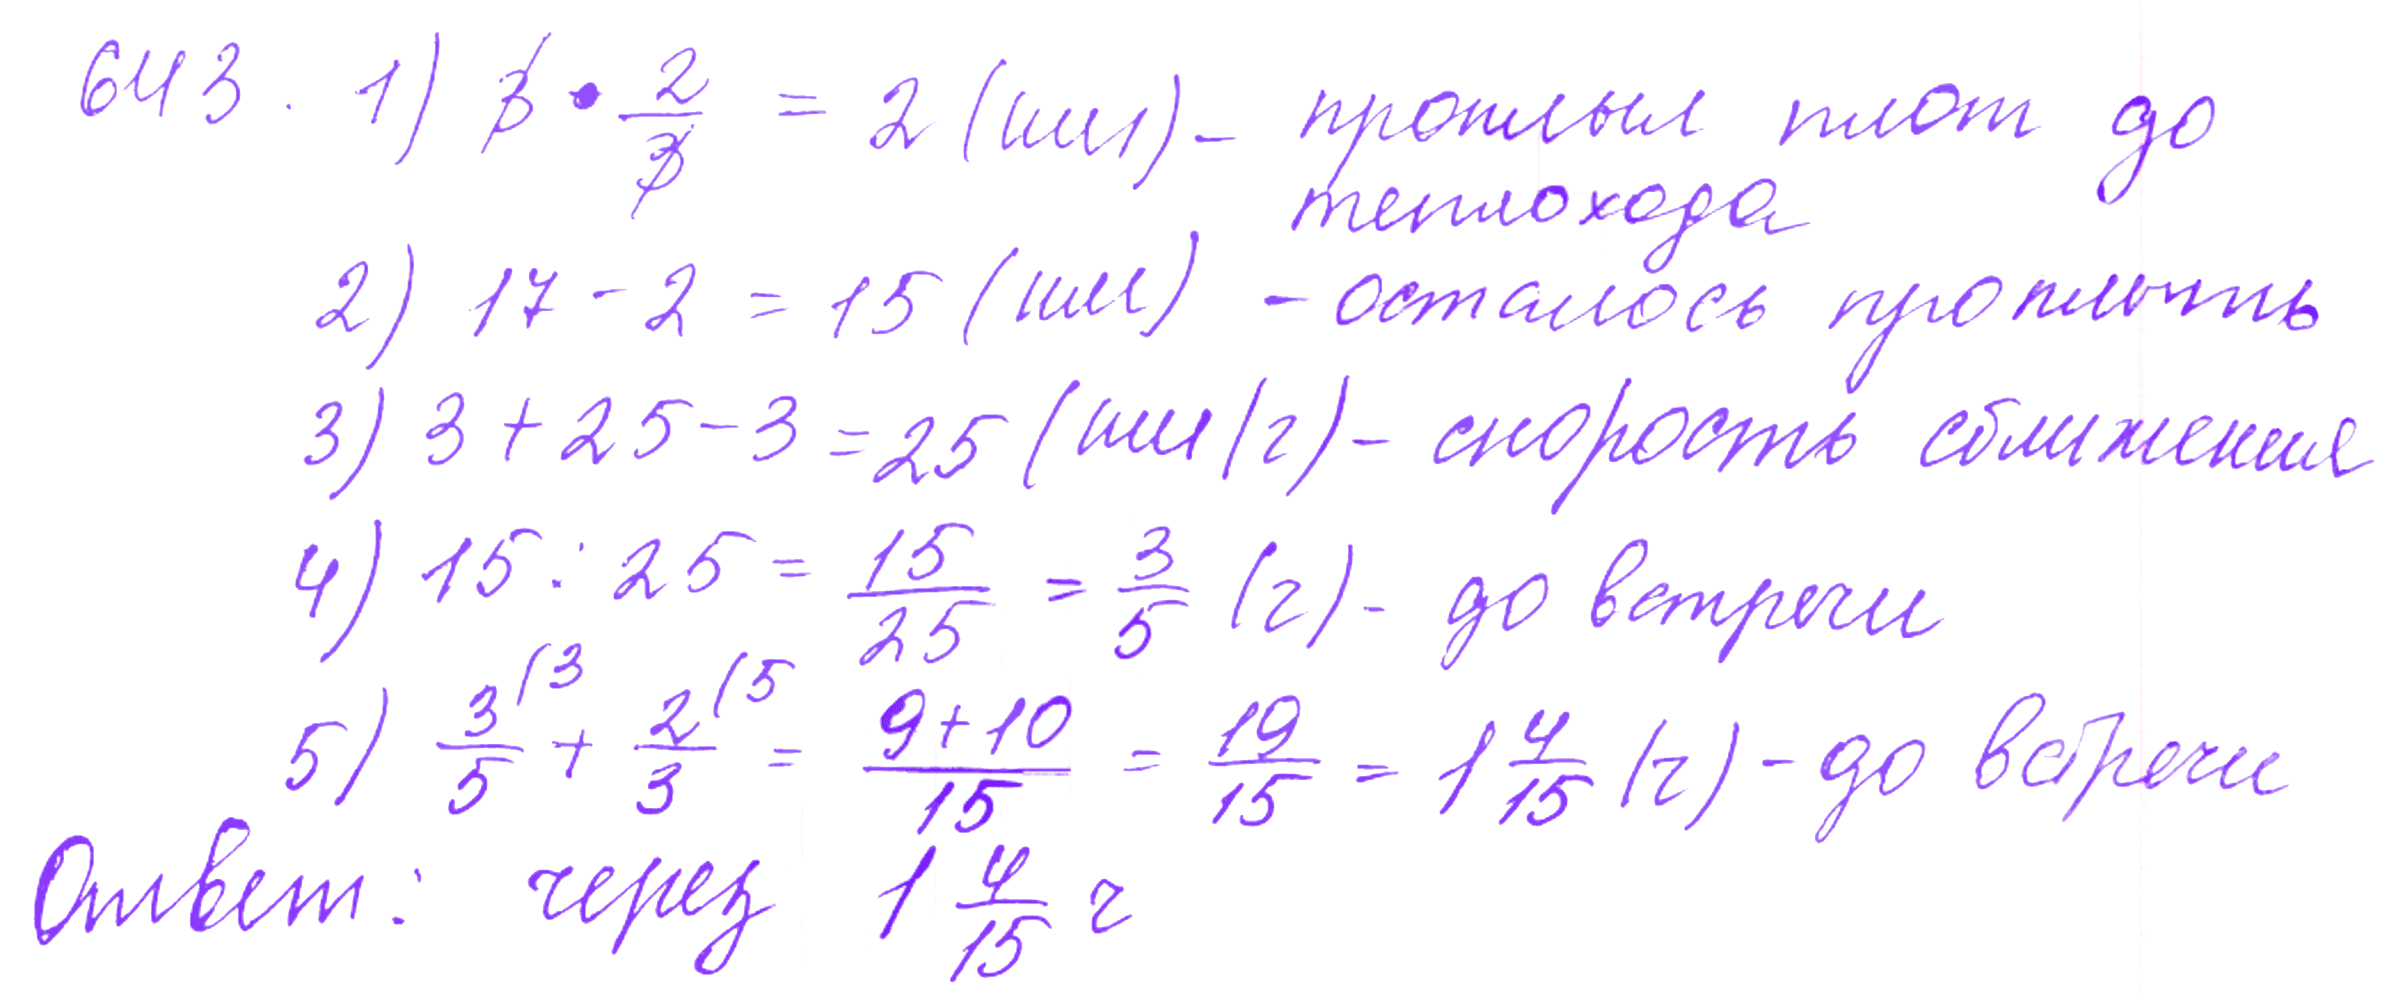 643. 1) 3 • 2/3 = 2 (км) - проплыл плот до
теплохода
2) 17 - 2 = 15 (км) - осталось проплыть
3) 3 + 25 - 3 = 25 (км/ч) - скорость сближения
4) 15 : 25 = 15/25 = 3/5 (ч) - до встречи
5) 3/5 (3 + 2/3 (5 = 9+10/15 = 19/15 = 1 4/15 (ч) - до встречи
Ответ: через 1 4/15 ч